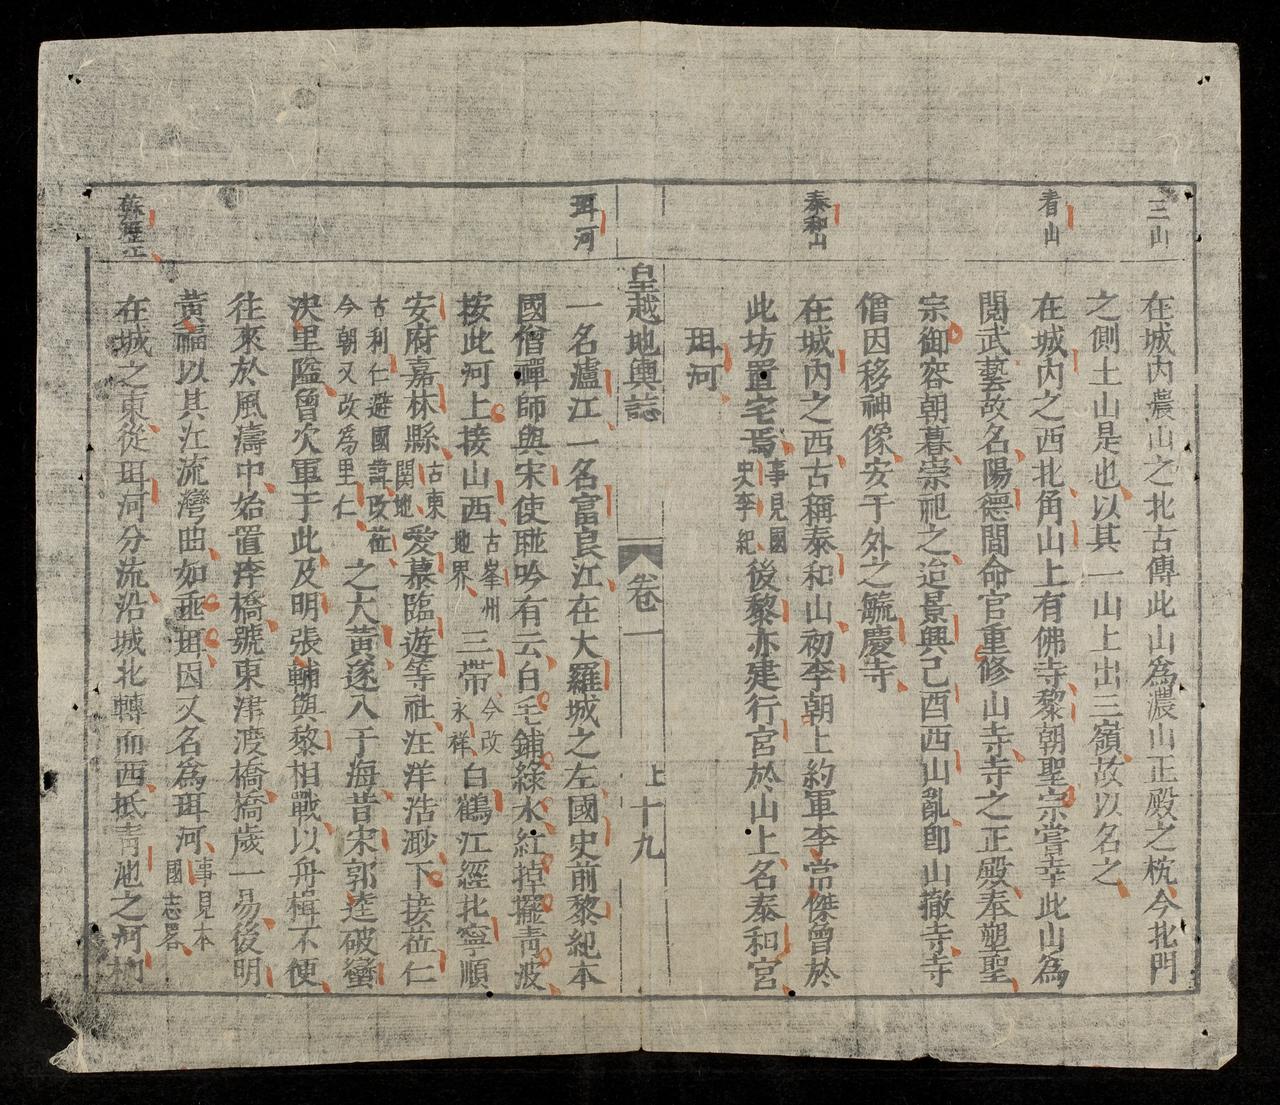 三山
在城内濃山之北古傳此山爲濃山正殿之枕今北門
之側土山是也以其一山上出三嶺故以名之
看山
在城内之西北角山上有佛寺黎朝聖宗嘗幸此山爲
閱武藝故名陽德間命官重修山寺寺之正殿奉塑聖
宗御容朝暮崇祀之迨景興己酉西山亂卽山撤寺寺
僧因移神像安于外之毓慶寺
泰和山
在城内之西古稱泰和山初李朝上約軍李常傑曾於
此坊置宅焉事見國史李紀後黎亦建行宮於山上名泰和宮
珥河
皇越地輿誌
卷一
上十九
珥河
一名瀘江一名富良江在大羅城之左國史前黎紀本
國僧禪師與宋使聯吟有云白毛鋪綠水紅掉擺靑波
按此河上接山西古峯州地界三帶今改永祥白鶴江經北寧順
安府嘉林縣古東閑地愛慕臨遊等社汪洋浩渺下接莅仁
古利仁避國諱改莅今朝又改爲里仁之大黃遂入于海昔宋郭逵破蠻
決里隘曾次軍于此及明張輔與黎相戰以舟楫不便
往來於風濤中始置浮橋號東津渡橋橋歲一易後明
黃福以其江流灣曲如垂珥因又名爲珥河事見本國志畧
蘇瀝江
在城之東從珥河分流沿城北轉而西抵靑池之河柳